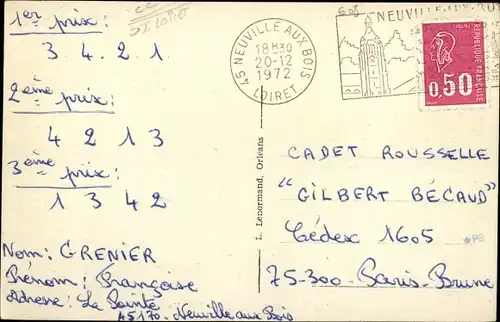 1er prix:
3. 4. 2. 1
2ème prix:
4 2 1 3
3ème prix:
1 3 4 2
Nom: GRENIER
Prénom: Françoise
Adresse: La Pointe
45170 - Neuville aux Bois
CC
51 LOIRET
45 NEUVILLE AUX BOIS
18H30
20-12
1972
LOIRET
NEUVILLE
RÉPUBLIQUE FRANÇAISE
0,50
L. Lenormand, Orléans
CADET ROUSSELLE
"GILBERT BÉCAUD"
Cédex 1605
75-300 - Paris-Brune